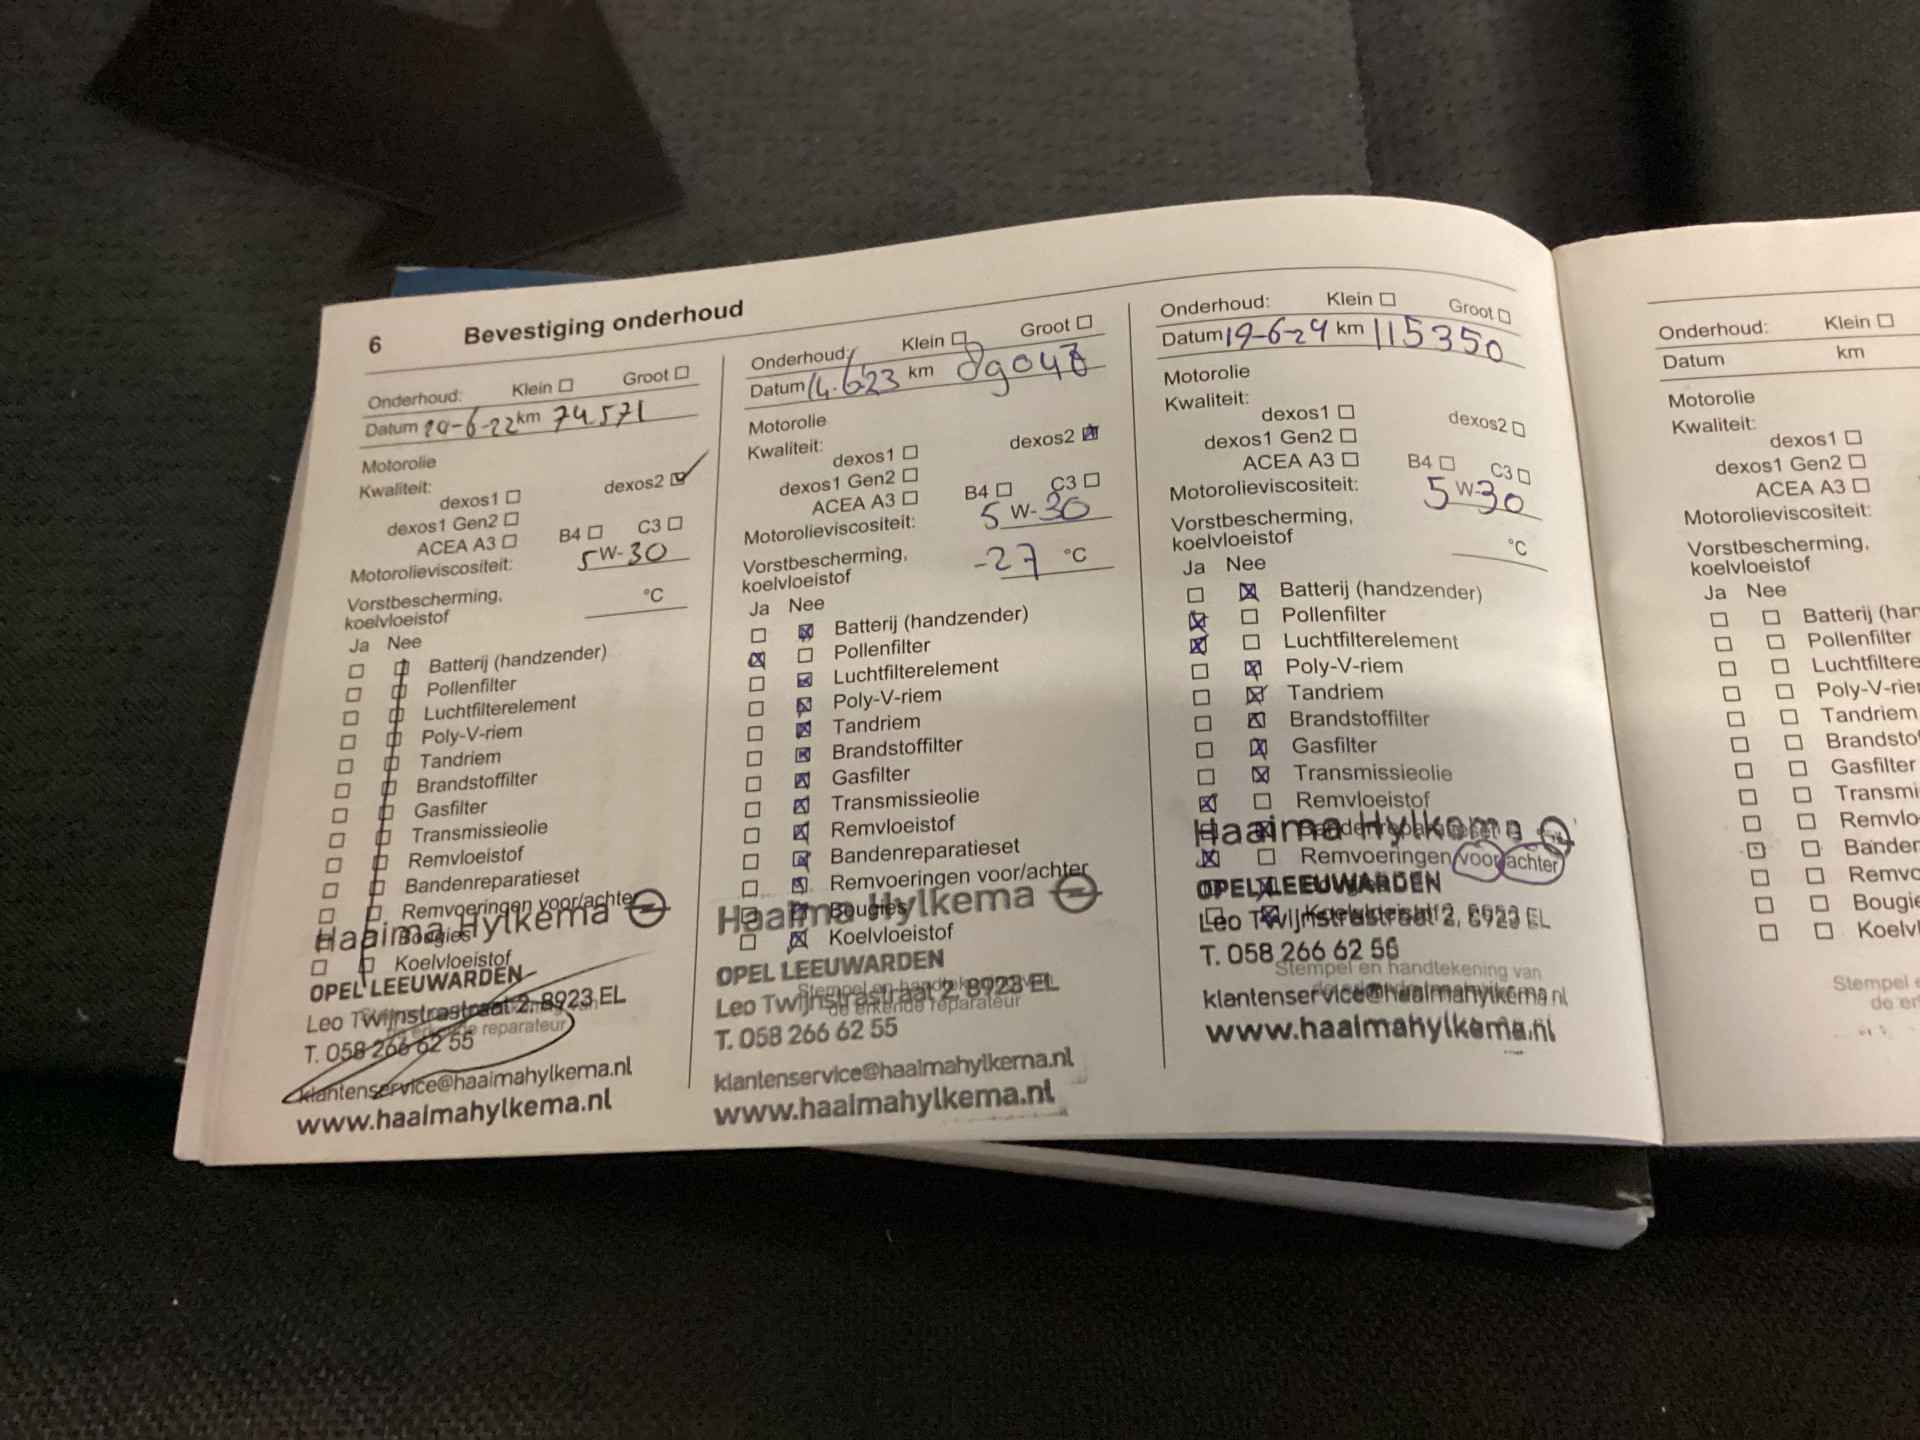 6 Bevestiging onderhoud
Onderhoud: Klein Groot
Datum 20-6-22 km 74571
Motorolie
Kwaliteit:
dexos1 dexos2
dexos1 Gen2
ACEA A3 B4 C3
Motorolieviscositeit: 5 W-30
Vorstbescherming,
koelvloeistof °C
Ja Nee
Batterij (handzender)
Pollenfilter
Luchtfilterelement
Poly-V-riem
Tandriem
Brandstoffilter
Gasfilter
Transmissieolie
Remvloeistof
Bandenreparatieset
Remvoeringen voor/achter
Haaima Hylkema
Bougies
Koelvloeistof
OPEL LEEUWARDEN
Leo Twijnstrastraat 2, 8923 EL
de erkende reparateur
T. 058 266 62 55
klantenservice@haaimahylkema.nl
www.haaimahylkema.nl
Onderhoud: Klein Groot
Datum 14.6.23 km
Motorolie
Kwaliteit:
dexos1 dexos2
dexos1 Gen2
ACEA A3 B4 C3
Motorolieviscositeit: 5 W-30
Vorstbescherming,
koelvloeistof -27 °C
Ja Nee
Batterij (handzender)
Pollenfilter
Luchtfilterelement
Poly-V-riem
Tandriem
Brandstoffilter
Gasfilter
Transmissieolie
Remvloeistof
Bandenreparatieset
Remvoeringen voor/achter
Haaima Hylkema
Bougies
Koelvloeistof
OPEL LEEUWARDEN
Stempel en handtekening van
Leo Twijnstrastraat 2, 8923 EL
de erkende reparateur
T. 058 266 62 55
klantenservice@haaimahylkema.nl
www.haaimahylkema.nl
Onderhoud: Klein Groot
Datum 19-6-24 km 115350
Motorolie
Kwaliteit:
dexos1 dexos2
dexos1 Gen2
ACEA A3 B4 C3
Motorolieviscositeit: 5 W-30
Vorstbescherming,
koelvloeistof °C
Ja Nee
Batterij (handzender)
Pollenfilter
Luchtfilterelement
Poly-V-riem
Tandriem
Brandstoffilter
Gasfilter
Transmissieolie
Remvloeistof
Bandenreparatieset
Haaima Hylkema
Remvoeringen voor/achter
OPEL LEEUWARDEN
Koelvloeistof
Leo Twijnstrastraat 2, 8923 EL
T. 058 266 62 55
Stempel en handtekening van
klantenservice@haaimahylkema.nl
www.haaimahylkema.nl
Onderhoud: Klein
Datum km
Motorolie
Kwaliteit:
dexos1
dexos1 Gen2
ACEA A3
Motorolieviscositeit:
Vorstbescherming,
koelvloeistof
Ja Nee
Batterij (han
Pollenfilter
Luchtfiltere
Poly-V-rie
Tandriem
Brandsto
Gasfilter
Transmi
Remvlo
Banden
Remvo
Bougie
Koelvl
Stempel e
de er